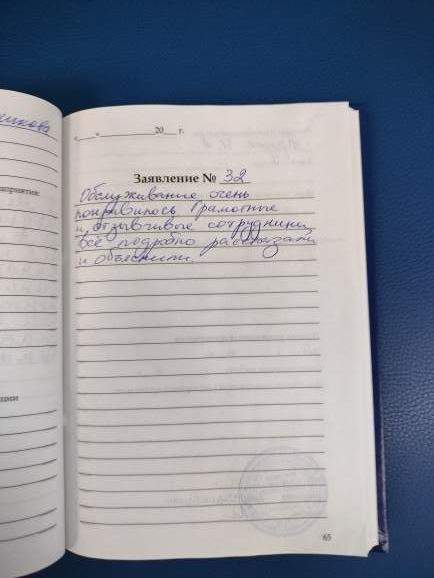 «___»____________20___ г.
Заявление № 32
Обслуживание очень
понравилось. Грамотные
и отзывчивые сотрудники,
всё подробно рассказали
и объяснили.
65